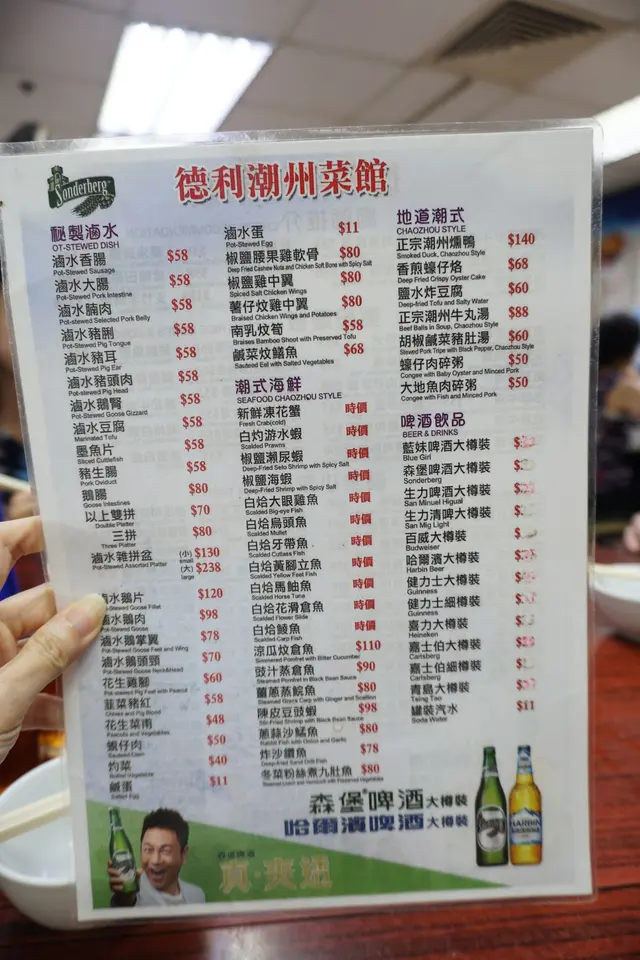 Sonderberg
德利潮州菜館
秘製滷水
OT-STEWED DISH
滷水香腸 $58
Pot-Stewed Sausage
滷水大腸 $58
Pot-Stewed Pork Intestine
滷水腩肉 $58
Pot-stewed Selected Pork Belly
滷水豬脷 $58
Pot-Stewed Pig Tongue
滷水豬耳 $58
Pot-Stewed Pig Ear
滷水豬頭肉 $58
Pot-stewed Pig Head
滷水鵝腎 $58
Pot-stewed Goose Gizzard
滷水豆腐 $58
Marinated Tofu
墨魚片 $58
Sliced Cuttlefish
豬生腸 $58
Pork Oviduct
鵝腸 $80
Goose Intestines
以上雙拼 $70
Double Platter
三拼 $80
Three Platter
滷水雜拼盆 (小) $130
Pot-Stewed Assorted Platter small
(大) $238
large
滷水鵝片 $120
Pot-Stewed Goose Fillet
滷水鵝肉 $98
Pot-Stewed Goose
滷水鵝掌翼 $78
Pot-Stewed Goose Feet and Wing
滷水鵝頭頸 $70
Pot-Stewed Goose Neck&Head
花生雞腳 $60
Pot-stewed Pig Feet with Peanut
韮菜豬紅 $58
Chives and Pig Blood
花生菜甫 $48
Peanuts and Vegetables
蠔仔肉 $50
Sauteed Clam
灼菜 $40
Boiled Vegetable
鹹蛋 $11
Salted Egg
滷水蛋 $11
Pot-Stewed Egg
椒鹽腰果雞軟骨 $80
Deep Fried Cashew Nuts and Chicken Soft Bone with Spicy Salt
椒鹽雞中翼 $80
Spiced Salt Chicken Wings
薯仔炆雞中翼 $80
Braised Chicken Wings and Potatoes
南乳炆筍 $58
Braises Bamboo Shoot with Preserved Tofu
鹹菜炆鱔魚 $68
Sauteed Eel with Salted Vegetables
潮式海鮮
SEAFOOD CHAOZHOU STYLE
新鮮凍花蟹 時價
Fresh Crab(cold)
白灼游水蝦 時價
Scalded Prawns
椒鹽瀨尿蝦 時價
Deep-Fried Seto Shrimp with Spicy Salt
椒鹽海蝦 時價
Deep-Fried Shrimp with Spicy Salt
白烚大眼雞魚 時價
Scalded Big-eye Fish
白烚烏頭魚 時價
Scalded Mullet
白烚牙帶魚 時價
Scalded Cutlass Fish
白烚黃腳立魚 時價
Scalded Yellow Feet Fish
白烚馬鮋魚 時價
Scalded Horse Tuna
白烚花滑倉魚 時價
Scalded Flower Slide
白烚鯪魚 時價
Scalded Carp Fish
涼瓜炆倉魚 $110
Simmered Pomfret with Bitter Cucumber
豉汁蒸倉魚 $90
Steamed Pomfret in Black Bean Sauce
薑蔥蒸鯇魚 $80
Steamed Grass Carp with Ginger and Scallion
陳皮豆豉蝦 $98
Stir-Fried Shrimp with Black Bean Sauce
蔥蒜沙鯭魚 $80
Rabbit Fish with Onion and Garlic
炸沙鑽魚 $78
Deep-Fried Sand Drill Fish
冬菜粉絲煮九肚魚 $80
地道潮式
CHAOZHOU STYLE
正宗潮州燻鴨 $140
Smoked Duck, Chaozhou Style
香煎蠔仔烙 $68
Deep Fried Crispy Oyster Cake
鹽水炸豆腐 $60
Deep-fried Tofu and Salty Water
正宗潮州牛丸湯 $88
Beef Balls in Soup, Chaozhou Style
胡椒鹹菜豬肚湯 $60
Stewed Pork Tripe with Black Pepper, Chaozhou Style
蠔仔肉碎粥 $50
Congee with Baby Oyster and Minced Pork
大地魚肉碎粥 $50
Congee with Fish and Minced Pork
啤酒飲品
BEER & DRINKS
藍妹啤酒大樽裝
Blue Girl
森堡啤酒大樽裝
Sonderberg
生力啤酒大樽裝
San Minuel Higual
生力清啤大樽裝
San Mig Light
百威大樽裝
Budweiser
哈爾濱大樽裝
Harbin Beer
健力士大樽裝
Guinness
健力士細樽裝
Guinness
喜力大樽裝
Heineken
嘉士伯大樽裝
Carlsberg
嘉士伯細樽裝
Carlsberg
青島大樽裝
Tsing Tao
罐裝汽水 $11
Soda Water
森堡啤酒大樽裝
哈爾濱啤酒大樽裝
HARBIN
森堡啤酒
真·爽扭